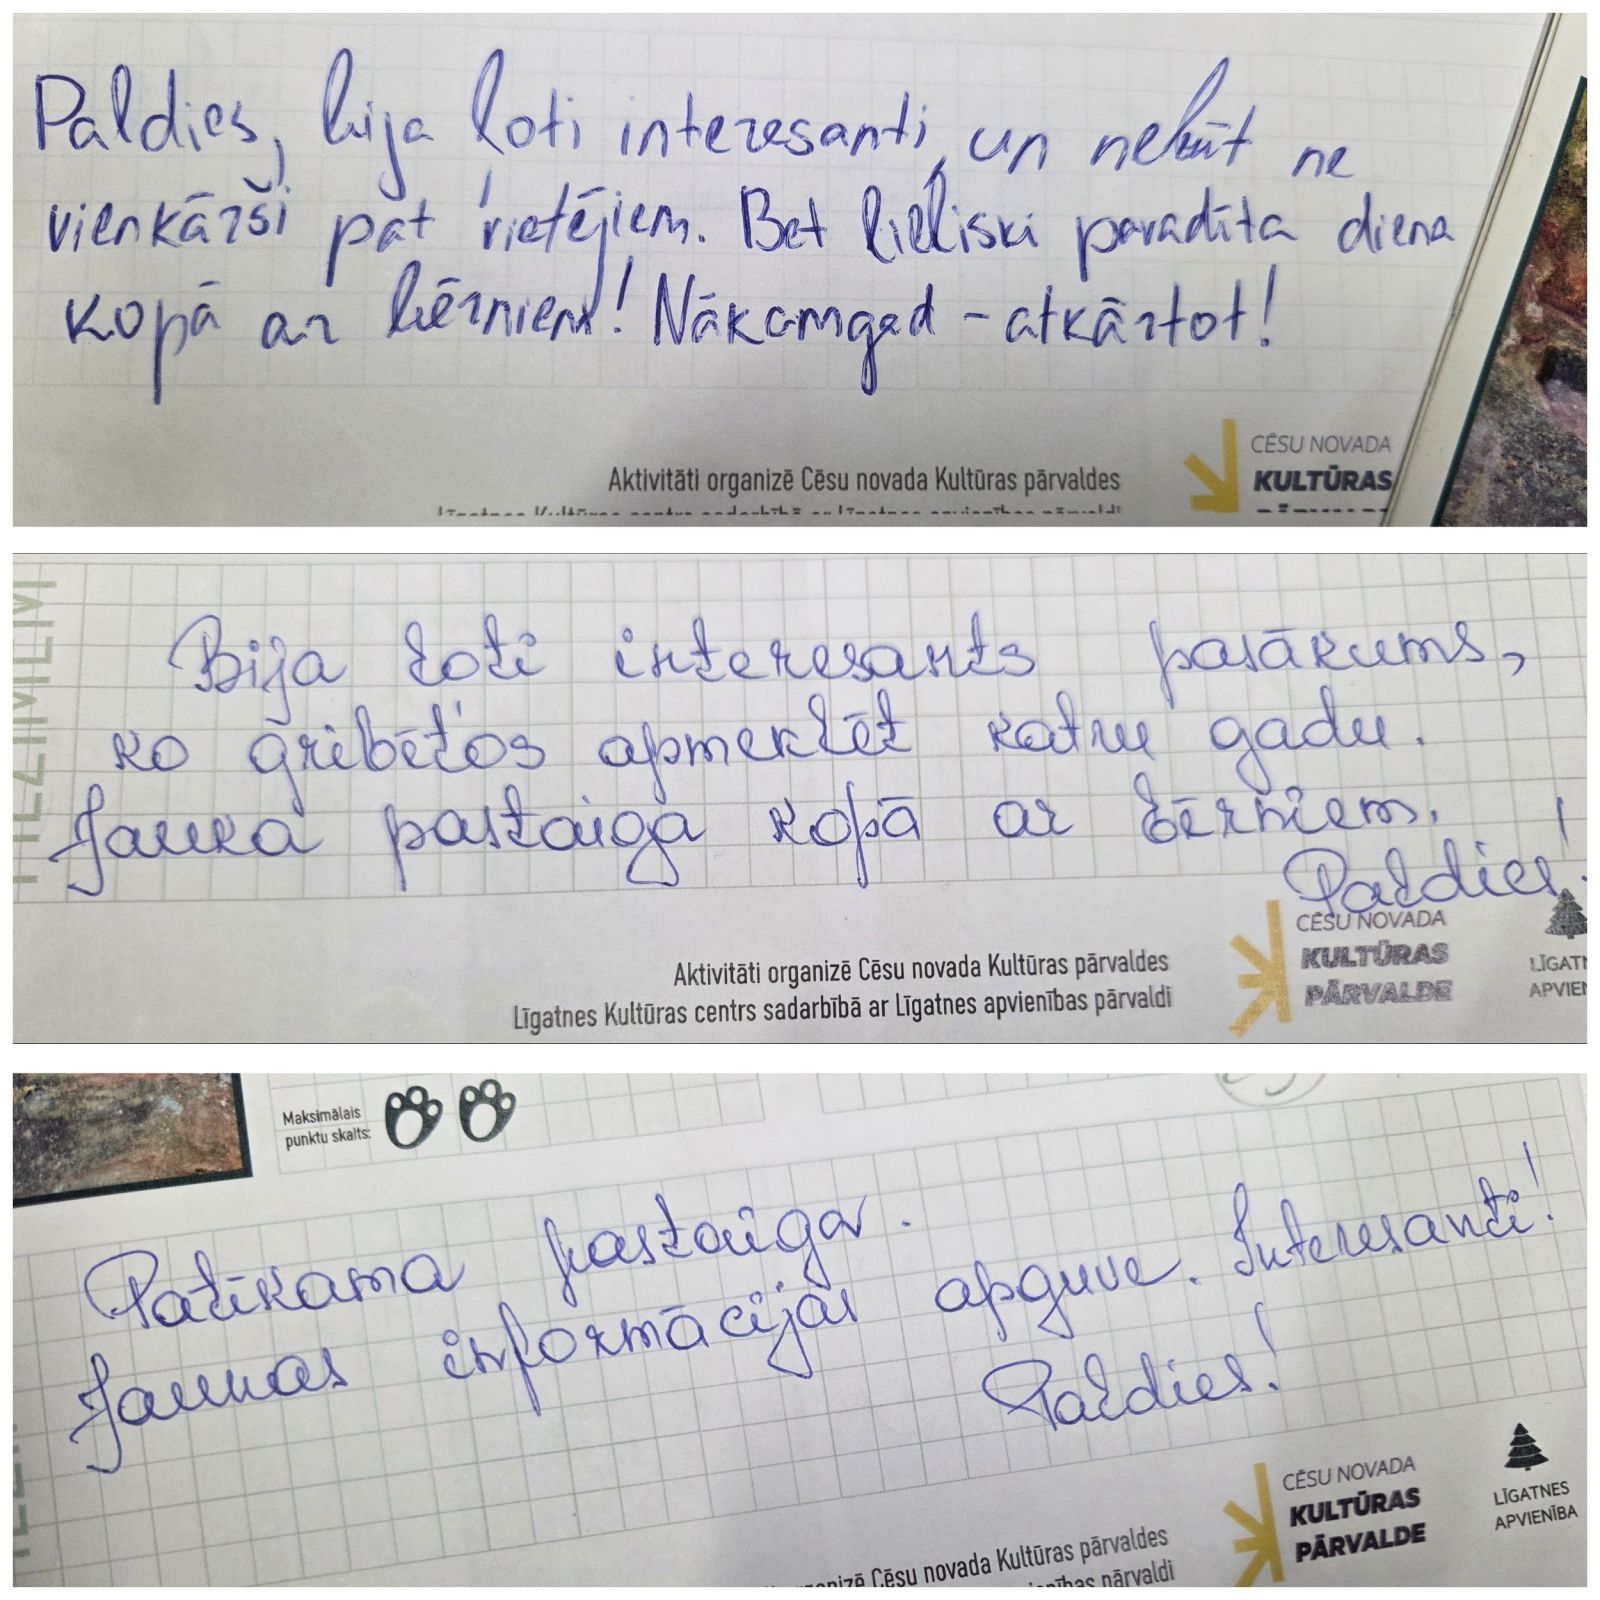 Paldies, bija ļoti interesanti, un nebūt ne
vienkārši pat vietējiem. Bet lieliski pavadīta diena
kopā ar bērniem! Nākamgad - atkārtot!
CĒSU NOVADA
KULTŪRAS
Aktivitāti organizē Cēsu novada Kultūras pārvaldes
Līgatnes Kultūras centrs sadarbībā ar Līgatnes apvienības pārvaldi
Bija ļoti interesants pasākums,
ko gribētos apmeklēt katru gadu.
Jauka pastaiga kopā ar bērniem.
Paldies!
CĒSU NOVADA
KULTŪRAS
PĀRVALDE
LĪGATN
APVIEN
Aktivitāti organizē Cēsu novada Kultūras pārvaldes
Līgatnes Kultūras centrs sadarbībā ar Līgatnes apvienības pārvaldi
Maksimālais
punktu skaits:
Patīkama pastaiga.
Jaunas informācijas apguve. Interesanti!
Paldies!
CĒSU NOVADA
KULTŪRAS
PĀRVALDE
LĪGATNES
APVIENĪBA
organizē Cēsu novada Kultūras pārvaldes
pārvaldi